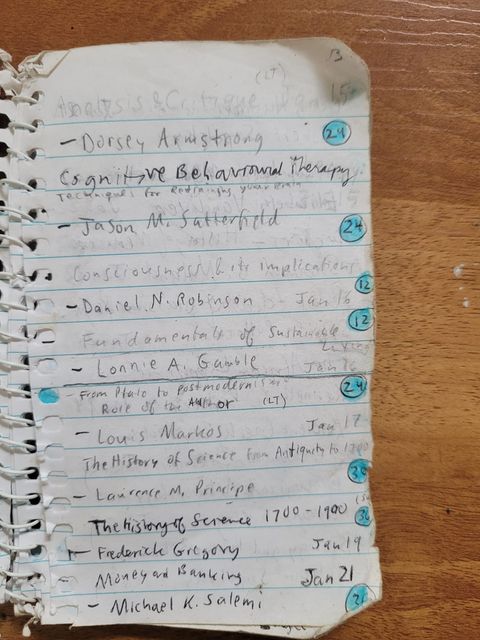 (LT) B
Analysis & Critique 15
- Dorsey Armstrong 24
Cognitive Behavioural Therapy
Techniques for Retraining your brain
- Jason M. Satterfield 24
Consciousness & its implications
12
- Daniel N. Robinson - Jan 16
12
Fundamentals of Sustainable
Living
- Lonnie A. Gamble Jan 16
From Plato to postmodernism 24
Role of the Author (LT)
- Louis Markos Jan 17
The History of Science from Antiquity to 1700
- Laurence M. Principe 36
The History of Science 1700 - 1900
36
- Frederick Gregory Jan 19
Money and Banking Jan 21
- Michael K. Salemi